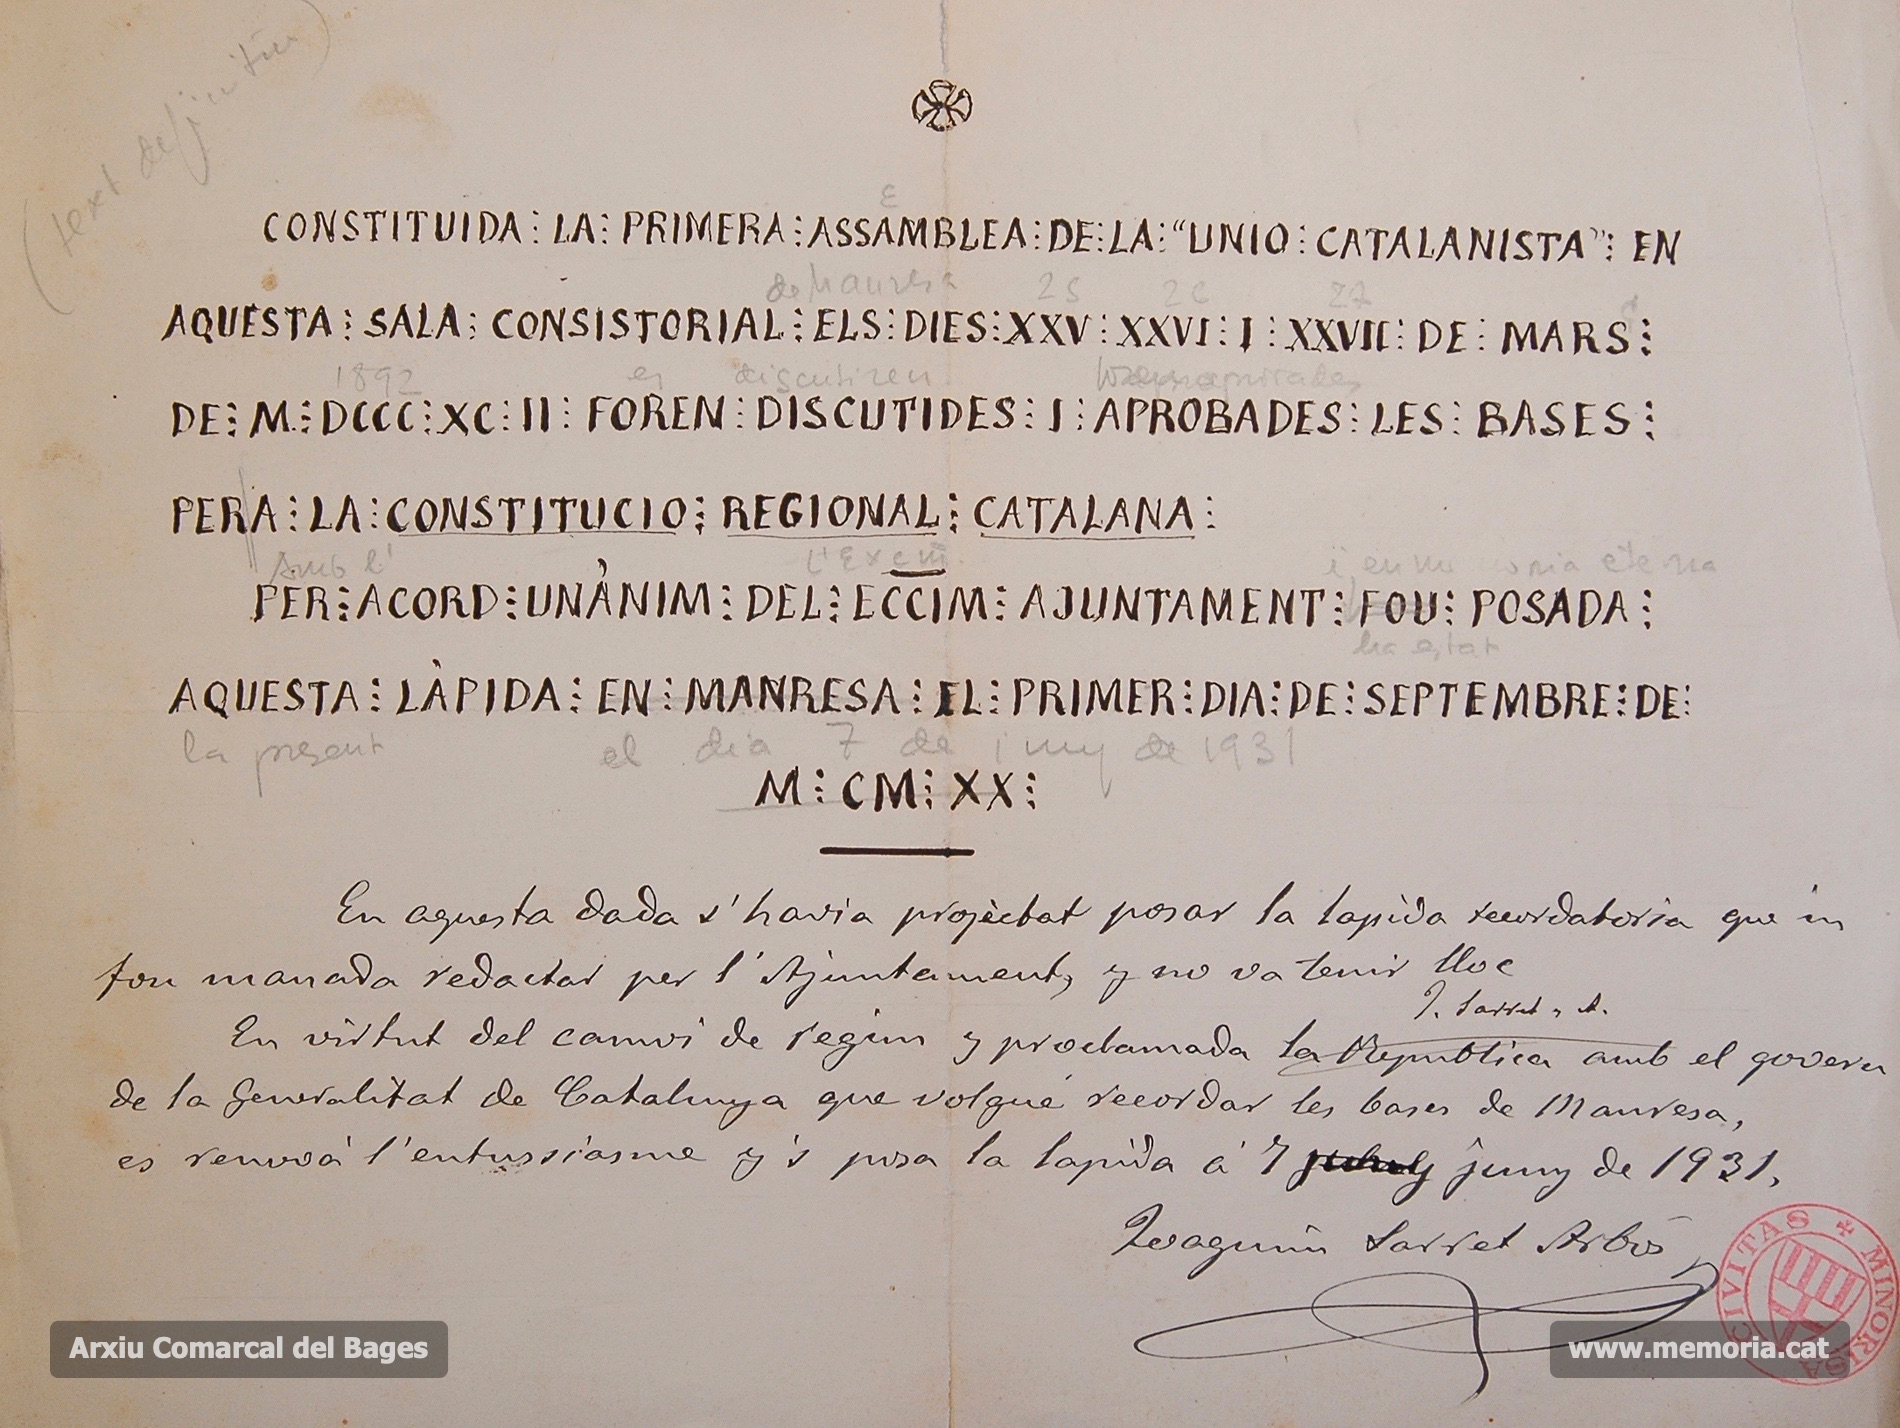 (text definitiu)
E
CONSTITUIDA ⋮ LA ⋮ PRIMERA ⋮ ASSAMBLEA ⋮ DE ⋮ LA ⋮ “UNIO ⋮ CATALANISTA” ⋮ EN
de Manresa 25 26 27
AQUESTA ⋮ SALA ⋮ CONSISTORIAL ⋮ ELS ⋮ DIES ⋮ XXV ⋮ XXVI ⋮ I ⋮ XXVII ⋮ DE ⋮ MARS ⋮
1892 es discutiren
DE ⋮ M ⋮ DCCC ⋮ XC ⋮ II ⋮ FOREN ⋮ DISCUTIDES ⋮ I ⋮ APROBADES ⋮ LES ⋮ BASES ⋮
PERA ⋮ LA ⋮ CONSTITUCIO ⋮ REGIONAL ⋮ CATALANA ⋮
Amb l' L'Excm i en memoria eterna
PER ⋮ ACORD ⋮ UNÀNIM ⋮ DEL ⋮ ECCIM ⋮ AJUNTAMENT ⋮ FOU ⋮ POSADA ⋮
ha estat
AQUESTA ⋮ LÀPIDA ⋮ EN ⋮ MANRESA ⋮ EL ⋮ PRIMER ⋮ DIA ⋮ DE ⋮ SEPTEMBRE ⋮ DE ⋮
la present el dia 7 de juny de 1931
M ⋮ CM ⋮ XX ⋮
En aquesta dada s'havia projèctat posar la lapida recordatoria que m
fou manada redactar per l'Ajuntament, y no va tenir lloc
J. Sarret y A.
En virtut del camvi de regim y proclamada la Republica amb el govern
de la Generalitat de Catalunya que volgué recordar les bases de Manresa,
es renová l'entussiasme y's posa la lapida á 7 juny de 1931,
Joaquim Sarret Arbós
CIVITAS ✚ MINORISA
Arxiu Comarcal del Bages
www.memoria.cat